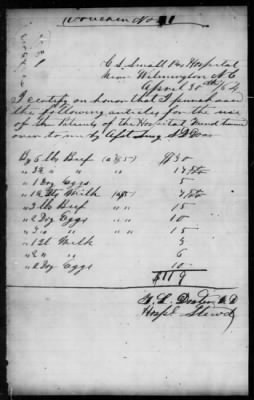 Voucher No 1
C. S. Small Pox Hospital
Near Wilmington N.C
April 30th /64
I certify on honor that I purchased
the following articles for the use
of the Patients of the Hospital Fund turned
over to me by Asst Surg
By 6 lb Beef $30
" 3½ " "
" 1 Doz Eggs 5
" Milk
" 3 lb Beef " " 15
" 2 Doz Eggs " " 10
" 3 " " " 15
" 1 Qt Milk 3
" 2 " " 6
" 2 Doz Eggs 10
$119
Hospl Steward